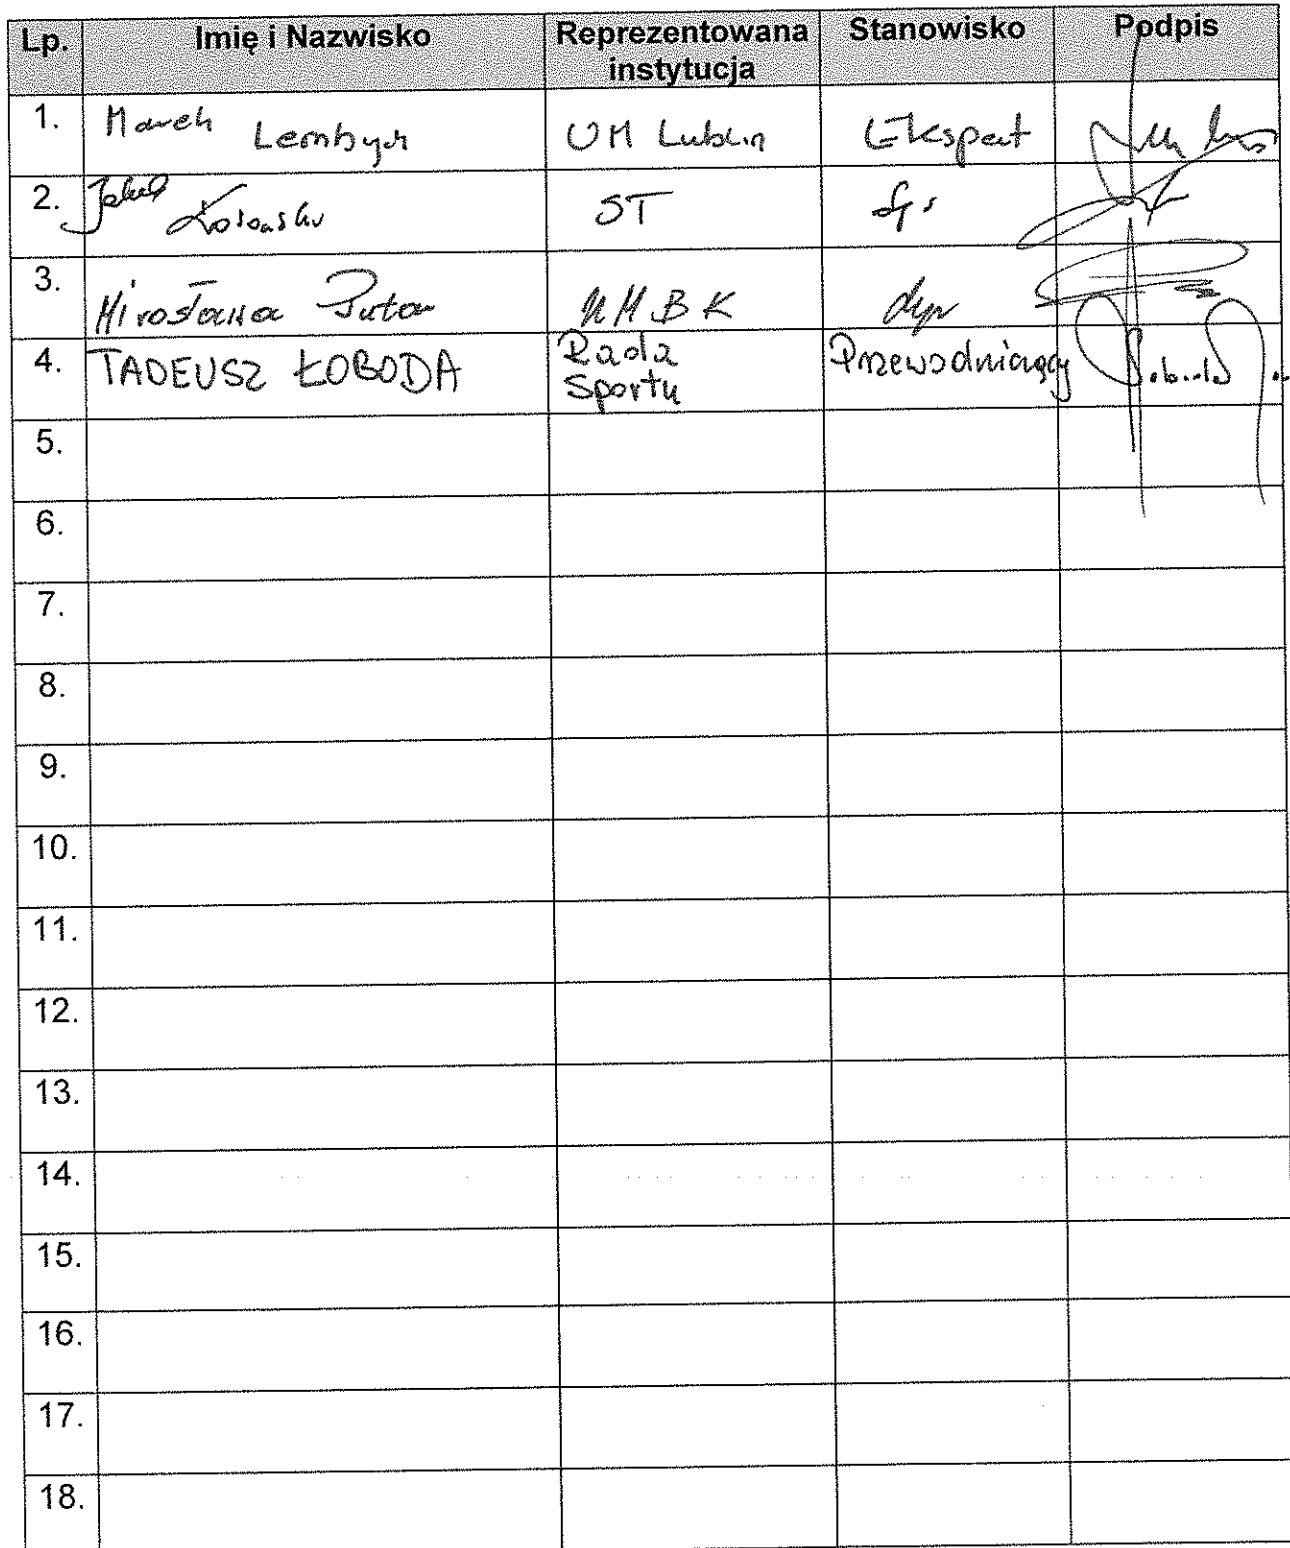 Lp. Imię i Nazwisko Reprezentowana instytucja Stanowisko Podpis
1. Marek UM Lublin Ekspert
2. Jakub Kosowski ST
3. Mirosława Puton UMBK dyr
4. TADEUSZ ŁOBODA Rada Sportu Przewodniczący
5.
6.
7.
8.
9.
10.
11.
12.
13.
14.
15.
16.
17.
18.